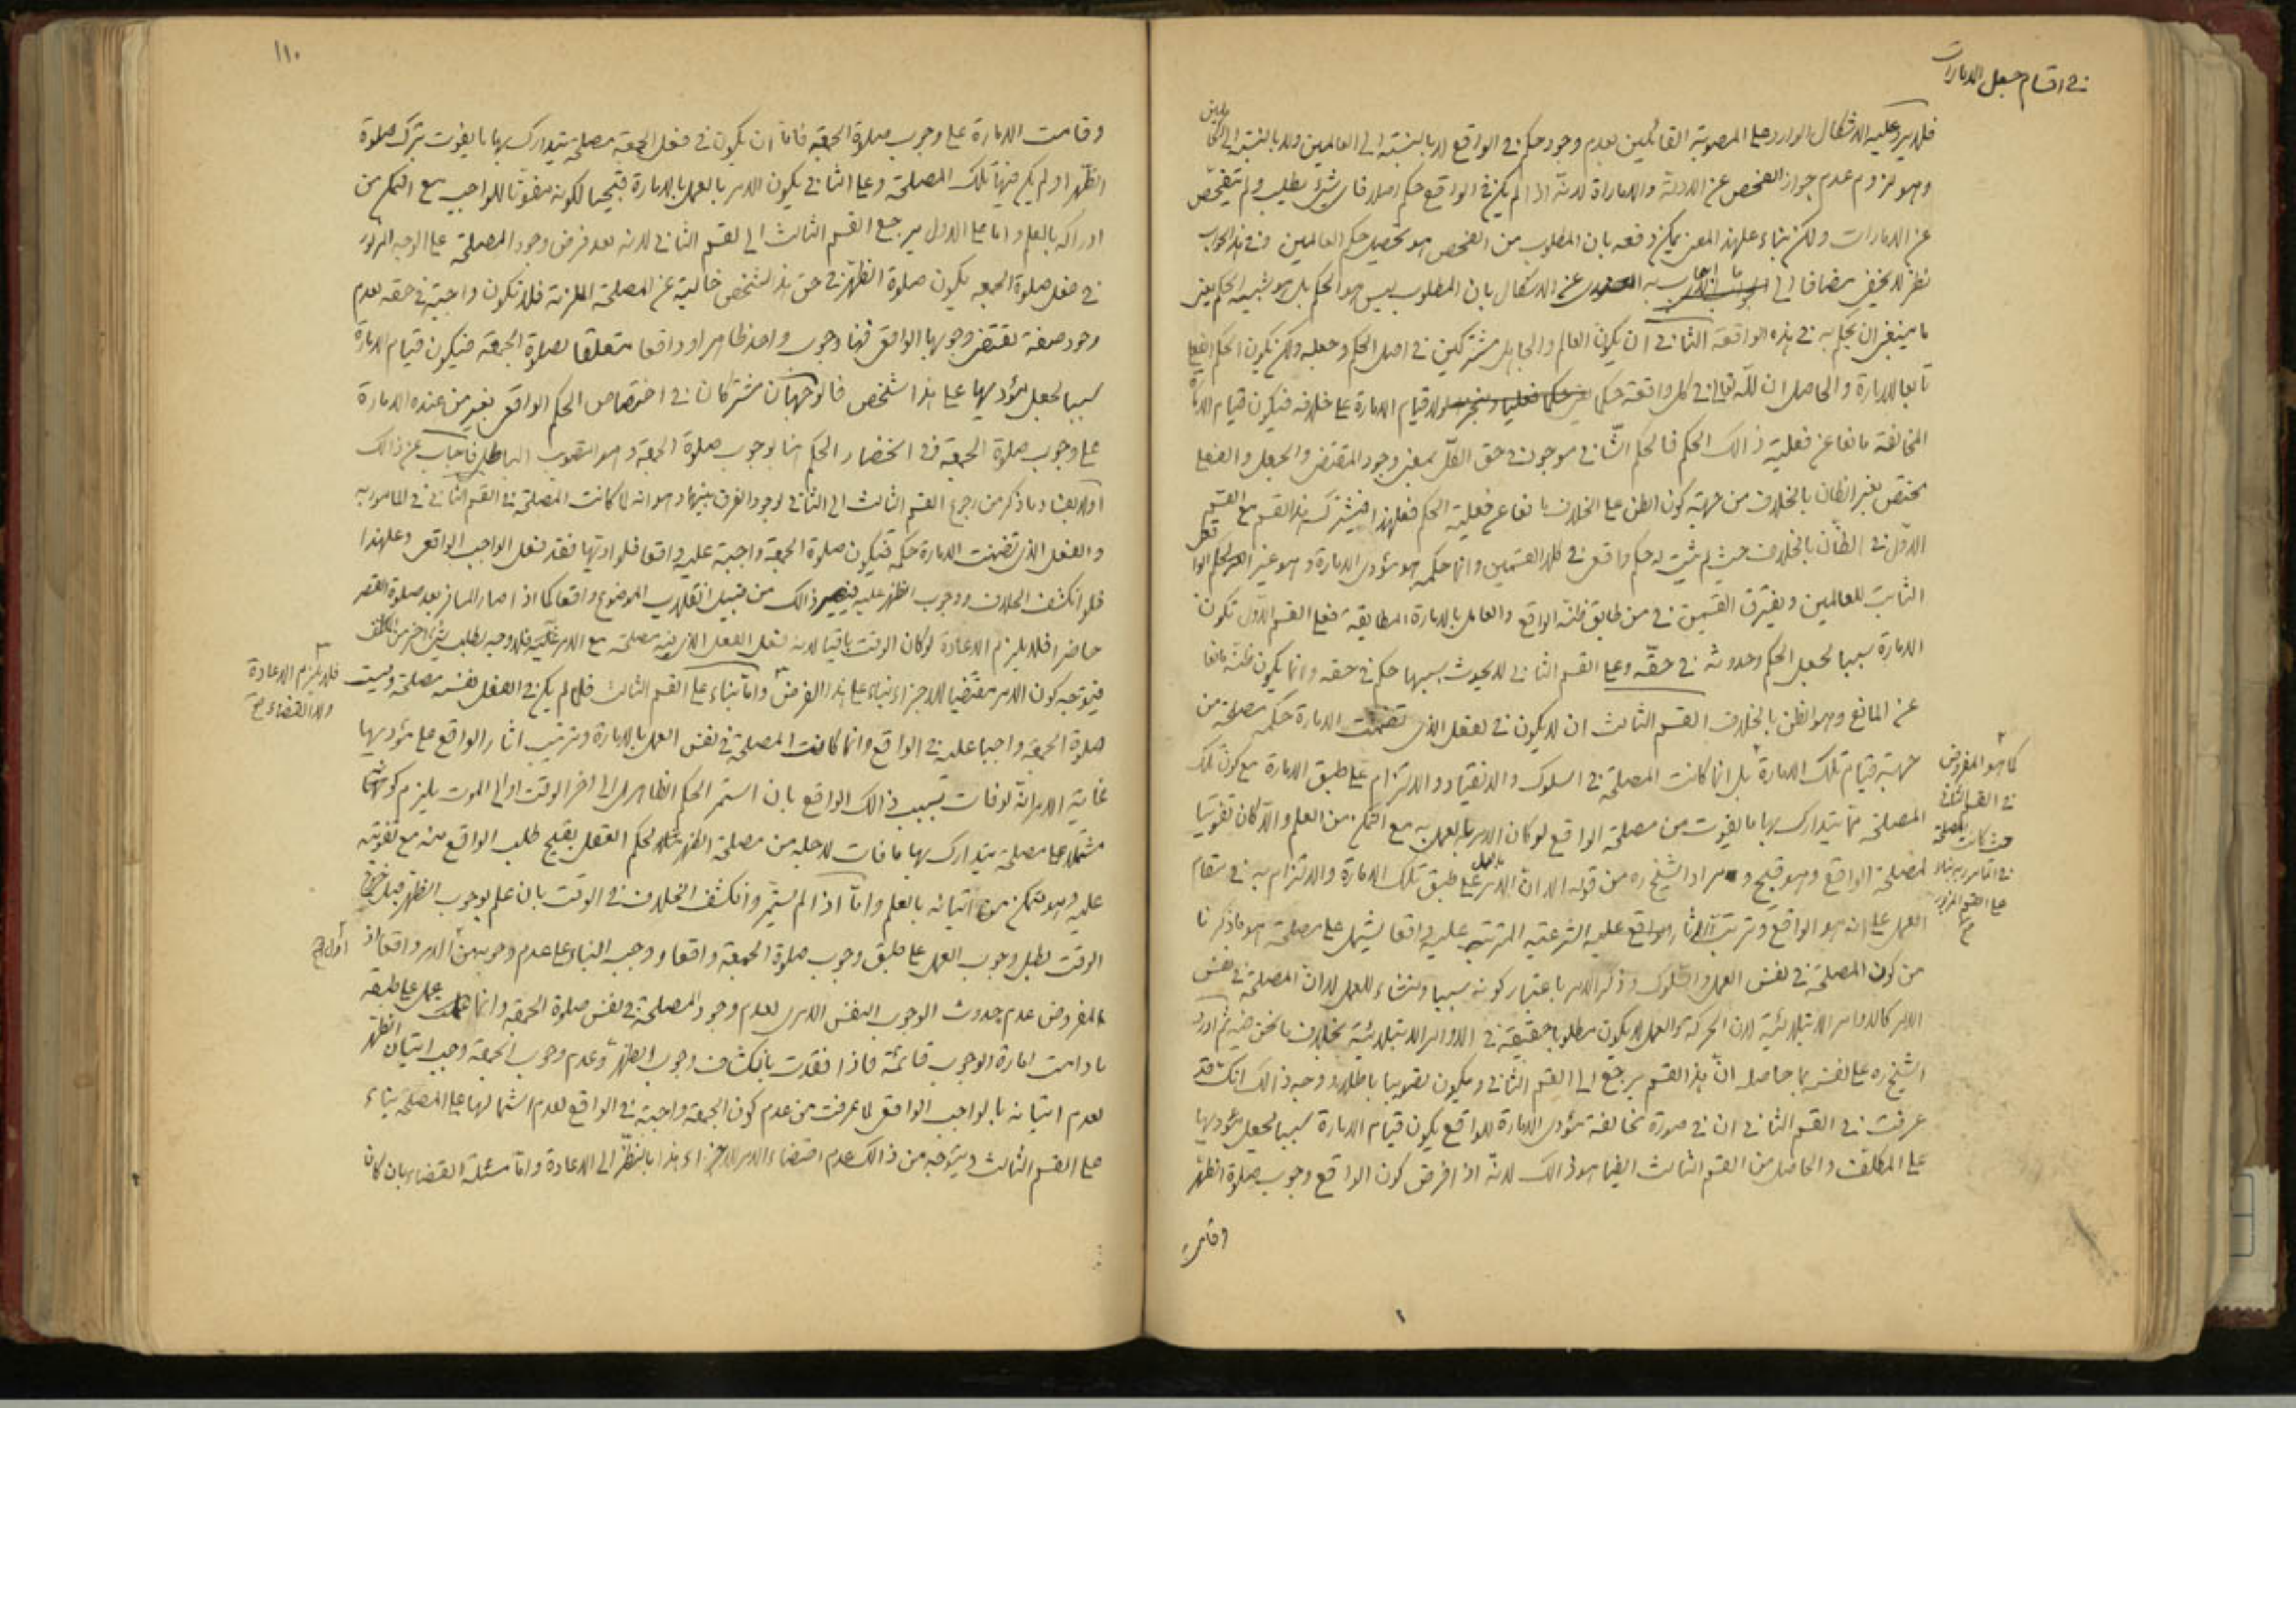 في اقسام جعل الامارات
فلا يرد عليه الاشكال الوارد على المصوبة القائلين بعدم وجود حكم في الواقع لا بالنسبة الى العالمين ولا بالنسبة الى
وهو لزوم عدم جواز الفحص عن الادلة والامارة لانه اذا لم يكن في الواقع حكم اصلا فاى شىء يطلب ولم يتفحص
عن الامارات ولكن بناء على هذا المعنى يمكن دفعه بان المطلوب من الفحص هو تحصيل حكم العالمين وفي هذا الجواب
نظر لا يخفى مضافا الى ما اجاب به عن الاشكال بان المطلوب ليس هو الحكم بل هو شبيه الحكم يعنى
ما ينبغى ان يحكم به في هذه الواقعة الثاني ان يكون العالم والجاهل مشتركين في اصل الحكم وجعله ولكن يكون الحكم الفعلى
تابعا للامارة والحاصل ان لله تعالى في كل واقعة حكما لولا قيام الامارة على خلافه فيكون قيام الامارة
المخالفة مانعا عن فعلية ذالك الحكم فالحكم الثاني موجود في حق الكل بمعنى وجود المقتضى والجعل والفعلى
مختص بغير الظان بالخلاف من جهة كون الظن على الخلاف مانعا عن فعلية الحكم فعلى هذا فيشترك هذا القسم مع القسم
الاول في الظان بالخلاف حيث لم يثبت له حكم واقعى في كلا القسمين وانما حكمه هو مؤدى الامارة وهو غير الحكم الواقعى
الثابت للعالمين ويفترق القسمين في من طابق ظنه الواقع والعامل بالامارة المطابقة فعلى القسم الاول تكون
الامارة سببا لجعل الحكم وحدوثه في حقه وعلى القسم الثاني لا يحدث بسببها حكم في حقه وانما يكون ظنه مانعا
عن المانع وهو الظن بالخلاف القسم الثالث ان لا يكون في الفعل الذى تضمنت الامارة حكمه مصلحة من
جهة قيام تلك الامارة بل انما كانت المصلحة في السلوك والانقياد والالتزام على طبق الامارة مع كون تلك
المصلحة مما يتدارك بها ما يفوت من مصلحة الواقع لو كان الامر بالعمل به مع التمكن من العلم والا كان تفويتا
لمصلحة الواقع وهو قبيح ومراد الشيخ ره من قوله الا ان الامر بالعمل على طبق تلك الامارة والالتزام به في مقام
العمل على انه هو الواقع وترتب الاثار الشرعية المترتبة عليه واقعا يشتمل على مصلحة هو ما ذكرنا
من كون المصلحة في نفس العمل والسلوك وذكر الامر باعتبار كونه سببا ومنشاء للعمل لا ان المصلحة في نفس
الامر كالاوامر الابتلائية لان الحركة والعمل لا يكون مطلوبا حقيقة في الاوامر الابتلائية بخلاف ما نحن فيه ثم اورد
الشيخ ره على نفسه بما حاصله ان هذا القسم يرجع الى القسم الثاني ويكون تصويبا باطلا ووجه ذالك انك قد
عرفت في القسم الثاني ان في صورة مخالفة مؤدى الامارة للواقع يكون قيام الامارة سببا لجعل مؤديها
على المكلف والحاصل من القسم الثالث ايضا هو ذالك لانه اذا فرض كون الواقع وجوب صلوة الظهر
وقامت
كما هو المفروض
في القسم الثاني
حيث كانت المصلحة
في المامور به بناء
على القسم المزبور
١١٠
وقامت الامارة على وجوب صلوة الجمعة فاما ان يكون في فعل الجمعة مصلحة يتدارك بها ما يفوت بترك صلوة
الظهر او لم يكن فيها تلك المصلحة وعلى الثاني يكون الامر بالعمل بالامارة قبيحا لكونه مفوتا للواجب مع التمكن من
ادراكه بالعلم واما على الاول يرجع القسم الثالث الى القسم الثاني لانه بعد فرض وجود المصلحة على الوجه المزبور
في فعل صلوة الجمعه يكون صلوة الظهر في حق هذا الشخص خالية عن المصلحة الملزمة فلا تكون واجبة في حقه لعدم
وجود صفة تقتضى وجوبها الواقعى فهنا وجوب واحد ظاهرا وواقعا متعلقا بصلوة الجمعة فيكون قيام الامارة
سببا لجعل مؤديها على هذا الشخص فالوجهان مشتركان في اختصاص الحكم الواقعى بغير من عنده الامارة
على وجوب صلوة الجمعة في انحصار الحكم هنا بوجوب صلوة الجمعة وهو التصويب الباطل فاجاب عن ذالك
اولا بفساد ما ذكر من رجوع القسم الثالث الى الثاني لوجود الفرق بينهما وهو انه لما كانت المصلحة في القسم الثاني في المامور به
والفعل الذى تضمنت الامارة حكمه فتكون صلوة الجمعة واجبة عليه واقعا فلو ادتها فقد فعل الواجب الواقعى وعلى هذا
فلو انكشف الخلاف ووجوب الظهر عليه فيصير ذالك من قبيل انقلاب الموضوع واقعا كما اذا صار المسافر بعد صلوة القصر
حاضرا فلا يلزم الاعادة لو كان الوقت باقيا لانه فعل الفعل الذى فيه مصلحة مع الامر عليه فلا وجه لطلب شىء اخر من المكلف
فيتوجه كون الامر مقتضيا للاجزاء بناء على هذا الفرض واما بناء على القسم الثالث فلما لم يكن في الفعل نفسه مصلحة وليست
فلا يلزم الاعادة
ولا القضاء
صلوة الجمعة واجبا عليه في الواقع وانما كانت المصلحة في نفس العمل بالامارة وترتيب اثار الواقع على مؤديها
غاية الامر انه لو فات بسبب ذالك الواقع بان استمر الحكم الظاهرى الى اخر الوقت او الى الموت يلزم كونها
مشتملا على مصلحة يتدارك بها ما فات لاجله من مصلحة الظهر لحكم العقل بقبح طلب الواقع منه مع تفويته
عليه وهو متمكن من اتيانه بالعلم واما اذا لم يستمر وانكشف الخلاف في الوقت بان علم بوجوب الظهر قبل خروج
الوقت بطل وجوب العمل على طبق وجوب صلوة الجمعة واقعا ووجب البناء على عدم وجوبها من الامر واقعا اذ
اول
المفروض عدم حدوث الوجوب النفس الامرى لعدم وجود المصلحة في نفس صلوة الجمعة وانما عمل على طبقه
ما دامت امارة الوجوب قائمة فاذا فقدت بانكشاف وجوب الظهر وعدم وجوب الجمعة وجب اتيان الظهر
لعدم اتيانه بالواجب الواقعى لما عرفت من عدم كون الجمعة واجبة في الواقع لعدم اشتمالها على المصلحة بناء
على القسم الثالث ويتوجه من ذالك عدم اقتضاء الامر للاجزاء هذا بالنظر الى الاعادة واما مسئلة القضاء بان كان